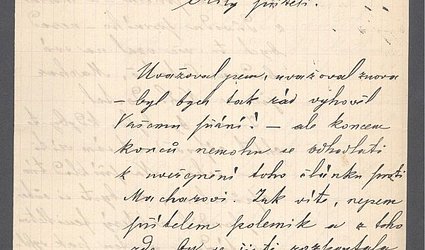 Milý příteli.
Uvažoval jsem, uvažoval znova
– byl bych tak rád vyhověl
Vašemu přání! – ale koncem
konců nemohu se odhodlati
k uveřejnění toho článku proti
Macharovi. Jak víte, nejsem
přítelem polemik a z toho
by se jistě